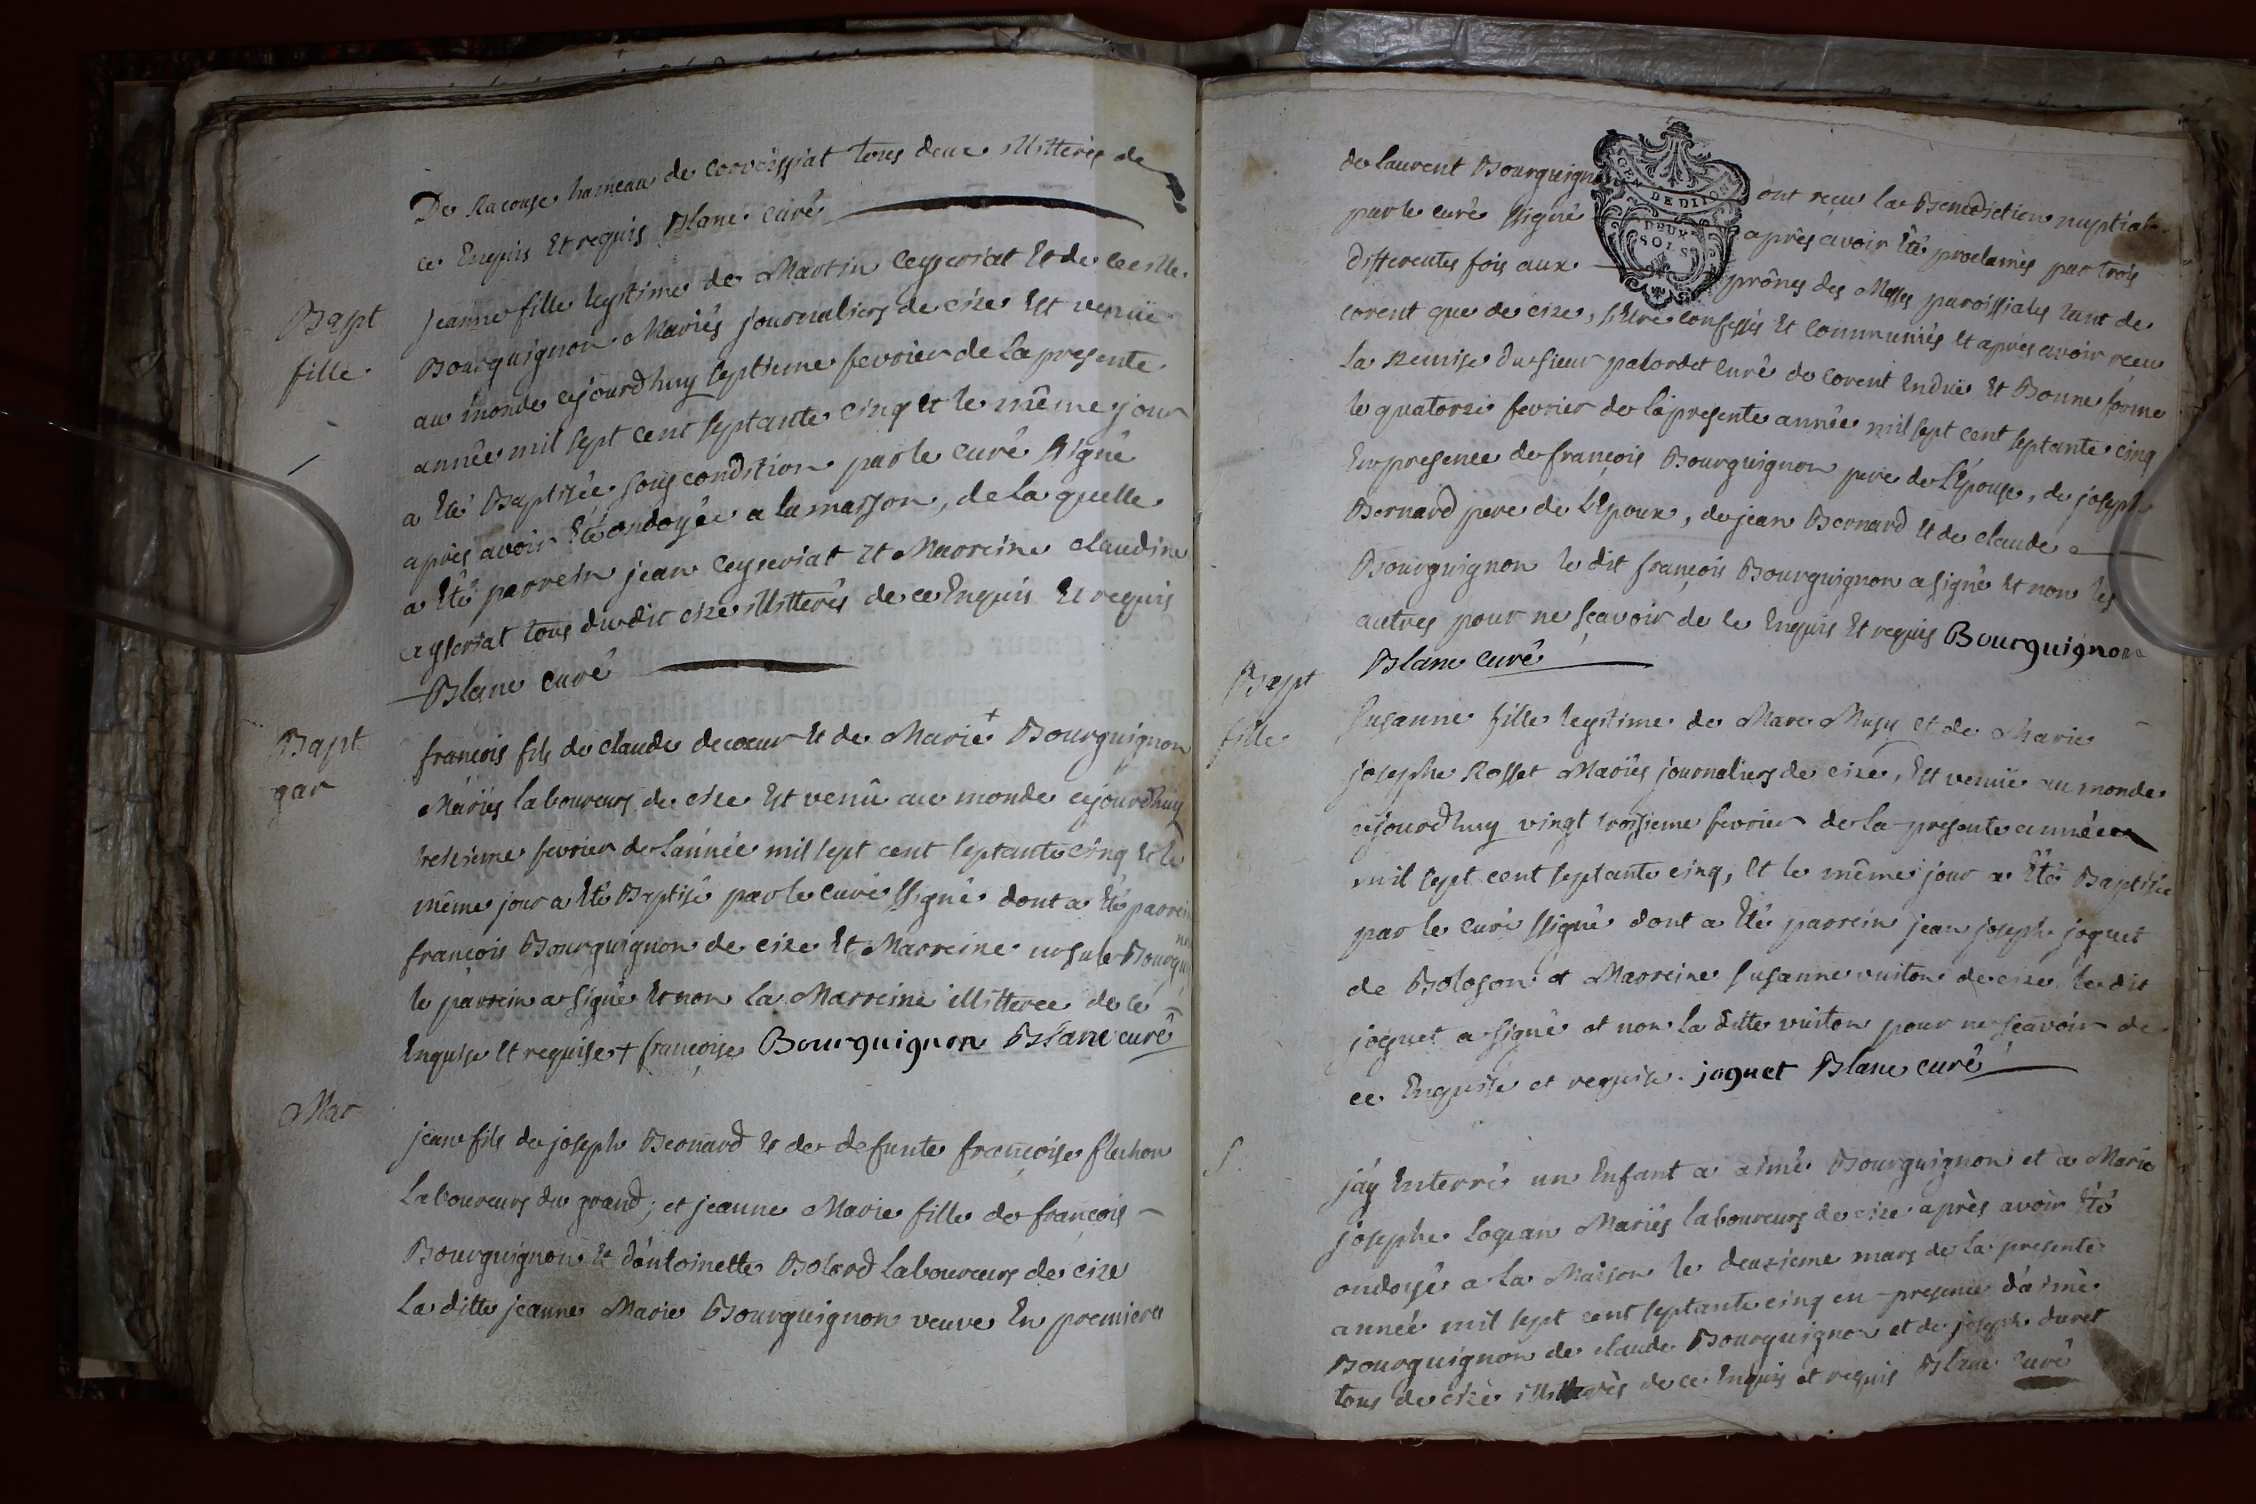 De Racouse hameau de corveissiat tous deux illitterés de
ce Enquis Et requis Blanc curé
Bapt
fille
jeanne fille legitime de Martin Ceyseriat Et de Cecille
Bourguignon Mariés journaliers de cize Est venuë
au monde cejourdhuy septieme fevrier de La presente
année mil sept cent septante cinq Et le même jour
a Eté Baptisée sous condition par le curé ssigné
après avoir Eté ondoyée a la maison, de la quelle
a Eté parrein jean Ceyseriat Et Marreine claudine
ceyseriat tous dudit cize illitterés de ce Enquis Et requis
Blanc curé
Bapt
gar
françois fils de claude decoeur Et de Marie + Bourguignon
Mariés laboureurs de cize Est venû au monde cejourdhuy
treizieme fevrier de L'année mil sept cent septante cinq Et le
même jour a Eté Baptisé par le curé ssigné dont a Eté parrein
françois Bourguignon de cize Et Marreine ursule Bourgui
non
le parrein a signé Et non La Marreine illitterée de ce
Enquise Et requise + françoise Bourguignon Blanc curé
Mar
jean fils de joseph Bernard Et de defunte françoise fluhon
Laboureurs du grand; et jeanne Marie fille de françois
Bourguignon Et d'antoinette Bolard Laboureurs de cize
La ditte jeanne Marie Bourguignon veuve En premiere
de laurent Bourguignon ont reçu la Benediction nuptiale
GEN DE DIJON
DEUX
SOLS
par le curé ssigné après avoir Eté proclamés par trois
differentes fois aux prônes des Messes paroissiales tant de
corent que de cize, s'Etre confessés Et communiés et après avoir receu
La Remise du sieur palordet curé de corent Enduë Et Bonne forme
le quatorze fevrier de la presente année mil sept cent septante cinq
En presence de françois Bourguignon pere de L'Epouse, de joseph
Bernard pere de L'Epoux, de jean Bernard Et de claude
Bourguignon le dit françois Bourguignon a signé Et non les
autres pour ne sçavoir de ce Enquis Et requis Bourguignon
Blanc curé
Bapt
fille
Susanne fille legitime de Marc Musy et de Marie
josephe Rosset Mariés journaliers de cize, Est venuë au monde
cejourdhuy vingt troisieme fevrier de la presente année
mil sept cent septante cinq, Et le même jour a Eté Baptisée
par le curé ssigné dont a Eté parrein jean joseph joguet
de Bolozon et Marreine Susanne vuiton de cize le dit
joguet a signé et non la ditte vuiton pour ne sçavoir de
ce Enquise et requise. joguet Blanc curé
S.
j'ay Enterré un Enfant a aimé Bourguignon et a Marie
josephe Logean Mariés laboureurs de cize après avoir Eté
ondoyé a La Maison le deuxieme mars de La presente
année mil sept cent septante cinq en presence d'aimé
Bourguignon de claude Bourguignon et de joseph duret
tous de cize illitterés de ce Enquis et requis Blanc curé